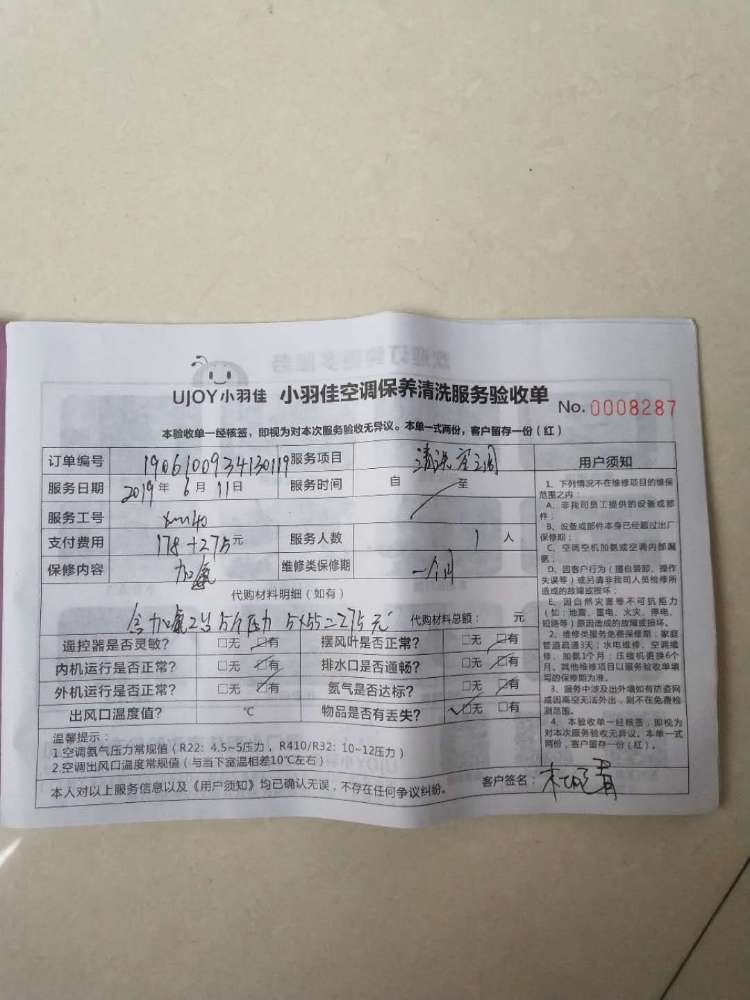 UJOY小羽佳 小羽佳空调保养清洗服务验收单 No. 0008287
本验收单一经核签，即视为对本次服务验收无异议。本单一式两份，客户留存一份（红）
订单编号 1906100934130119 服务项目 清洗空调
服务日期 2019年6月11日 服务时间 自 至
服务工号 xm40
支付费用 178+275元 服务人数 1人
保修内容 加氨 维修类保修期 一个月
代购材料明细（如有）
含加氨 5个压力 5×55=275元 代购材料总额： 元
遥控器是否灵敏? □无 □有 摆风叶是否正常? □无 □有
内机运行是否正常? □无 □有 排水口是否通畅? □无 □有
外机运行是否正常? □无 □有 氨气是否达标? □无 □有
出风口温度值? ℃ 物品是否有丢失? □无 □有
温馨提示：
1.空调氨气压力常规值（R22: 4.5~5压力，R410/R32: 10~12压力）
2.空调出风口温度常规值（与当下室温相差10℃左右）
本人对以上服务信息以及《用户须知》均已确认无误，不存在任何争议纠纷。 客户签名：
用户须知
1、下列情况不在维修项目的维保
范围之内：
A、非我司员工提供的设备或部
件；
B、设备或部件本身已经超过出厂
保修期；
C、空调空机加氨或空调内部漏
氨；
D、因客户行为（擅自装卸、操作
失误等）或另请非我司人员检修所
造成的故障或损坏；
E、因自然灾害等不可抗拒力
（如：地震、雷电、火灾、停电、
短路等）原因造成的故障或损坏。
2、维修类服务免费保修期：家庭
管道疏通3天；水电维修、空调维
修、加氨1个月；压缩机更换6个
月。其他维修项目以服务验收单填
写的保修期为准。
3、服务中涉及出外墙如有防盗网
或因高空无法外出，则不在免费检
测范围。
4、本验收单一经核签，即视为
对本次服务验收无异议。本单一式
两份，客户留存一份（红）。